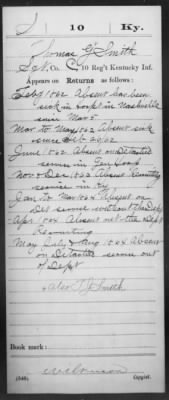 S 10 Ky.
Thomas Y. Smith
Sgt, Co. C, 10 Reg't Kentucky Inf.
Appears on Returns as follows:
Feby 1862 Absent has been
sick in hospt in Nashville
since Mar 5
Mar to May 1862 Absent sick
since Feb 20/62
June 1862 Absent on Detached
service in Gen Hosp
Nov & Dec 1863 Absent Recruiting
service in Ky
Jan to Nov 1864 Absent on
Det service without the Dept
Apr 1864 Absent out the Dept
Recruiting
May July & Aug 1864 Absent
on Detached service out
of Dept
also T. J. Smith
Book mark:
(546)
Copyist.